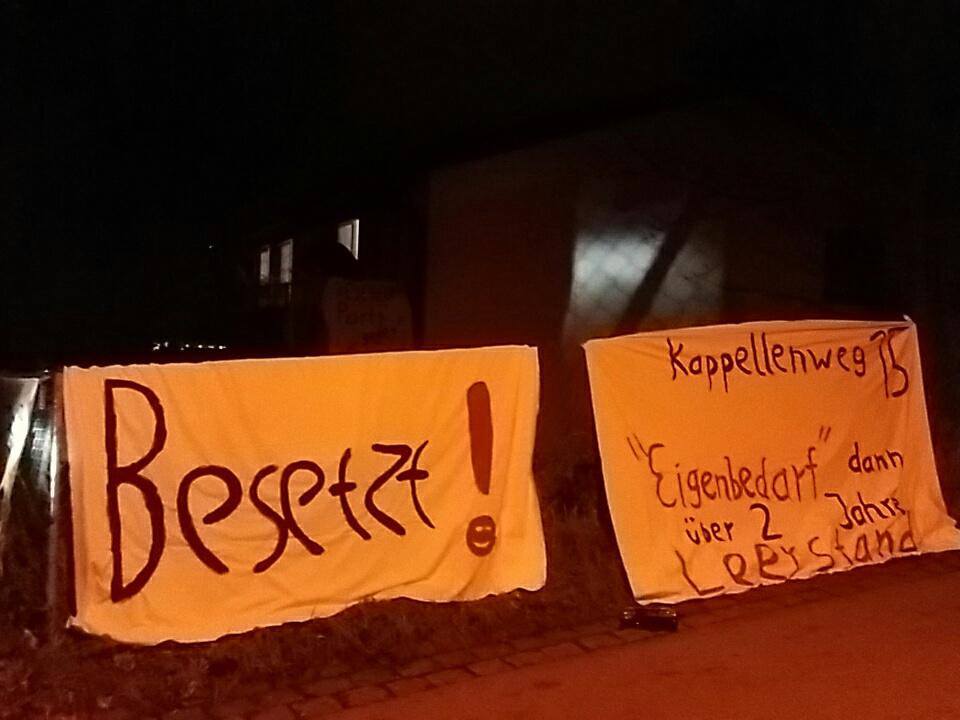 Besetzt!
Kappellenweg 15
"Eigenbedarf" dann
über 2 Jahre
Leerstand